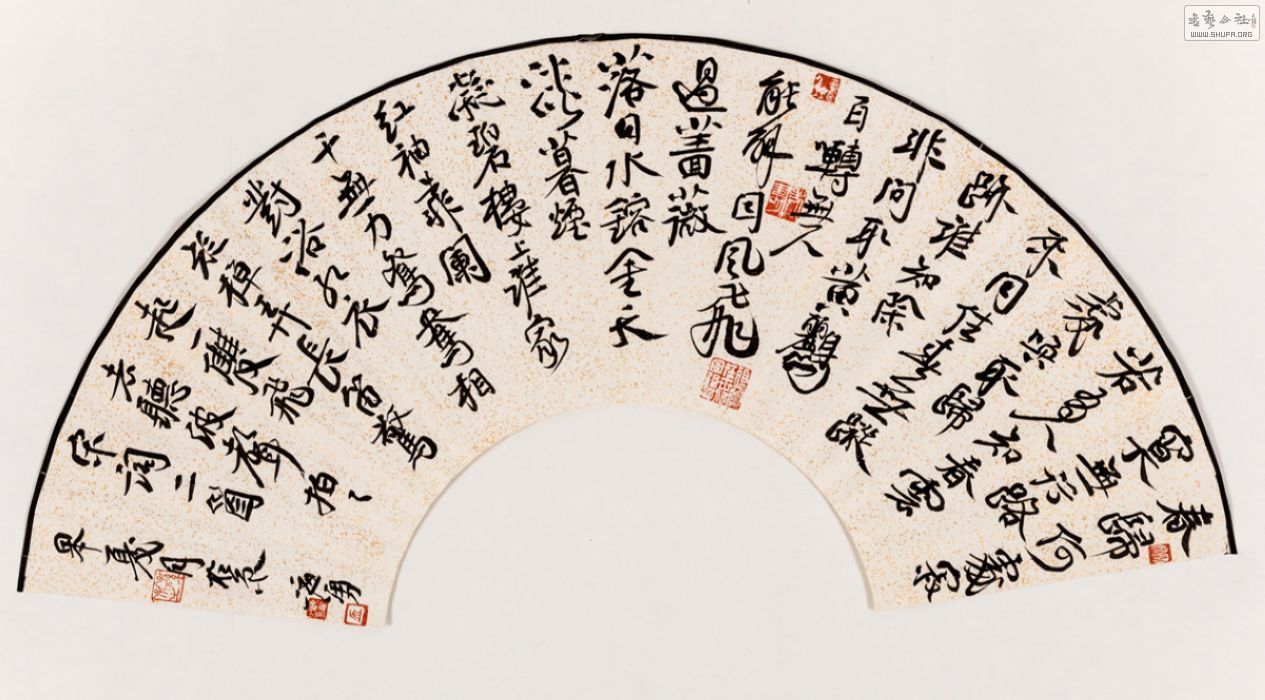 春歸何處寂
寞無行路
若有人知春
取歸
來同住春無蹤
跡誰知除
非問取黃鸝
百囀無人
能解因風飛
過薔薇
落日水鎔金天
淡淡暮煙
凝碧樓上誰家
紅袖靠闌
干無力鴛鴦相
對浴紅衣
短棹弄長笛驚
起一雙飛
去聽波聲拍〻
宋詞二首
夏月
書藝公社
WWW.SHUFA.ORG